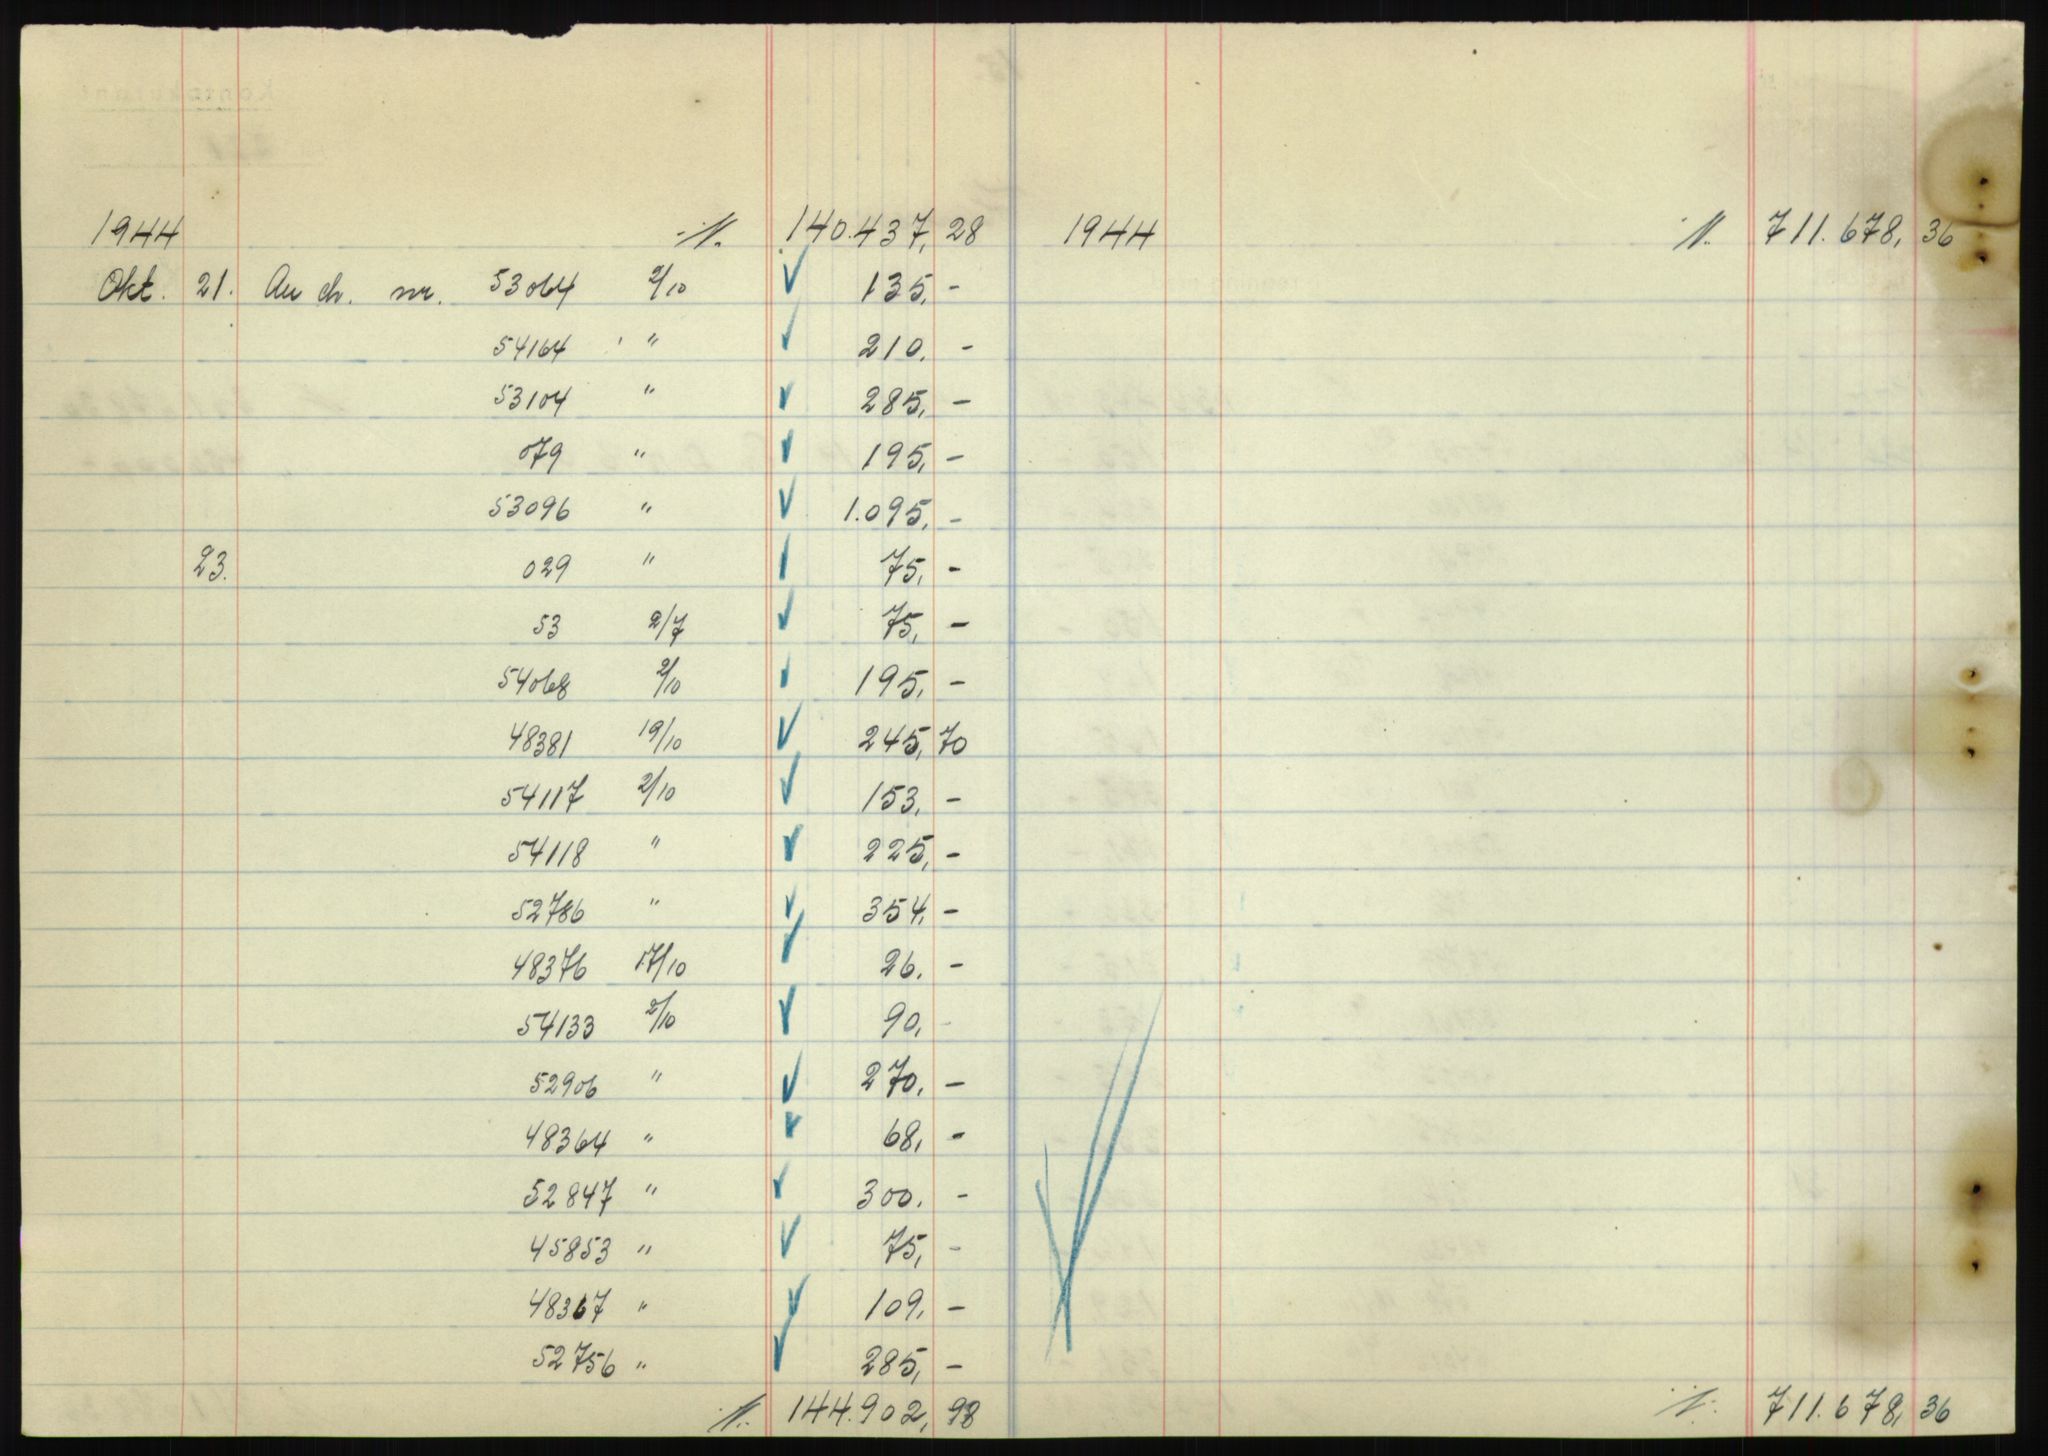 1944 ./. 140.437,28
Okt. 21. An ch. nr. 53064 2/10 135,-
54164 " 210,-
53104 " 285,-
079 " 195,-
53096 " 1.095,-
23. 029 " 75,-
53 2/7 75,-
54068 2/10 195,-
48381 19/10 245,70
54117 2/10 153,-
54118 " 225,-
52786 " 354,-
48376 17/10 26,-
54133 2/10 90,-
52906 " 270,-
48364 " 68,-
52847 " 300,-
45853 " 75,-
48367 " 109,-
52756 " 285,-
./. 144.902,98
1944 ./. 711.678,36
./. 711.678,36